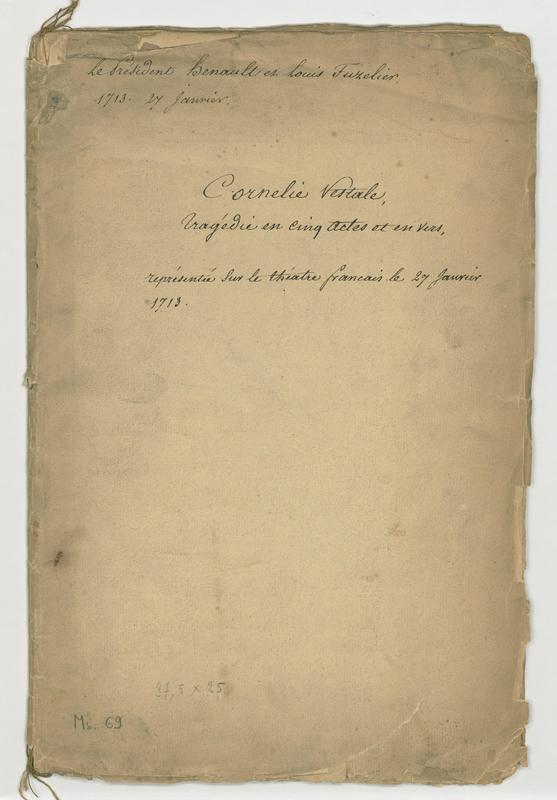 Le Président Henault et Louis Fuzelier.
1713. 27 Janvier.
Cornelie Vestale,
tragédie en cinq actes et en vers,
représentée sur le théatre francais le 27 Janvier
1713.
37,5 x 25
Ms. 69